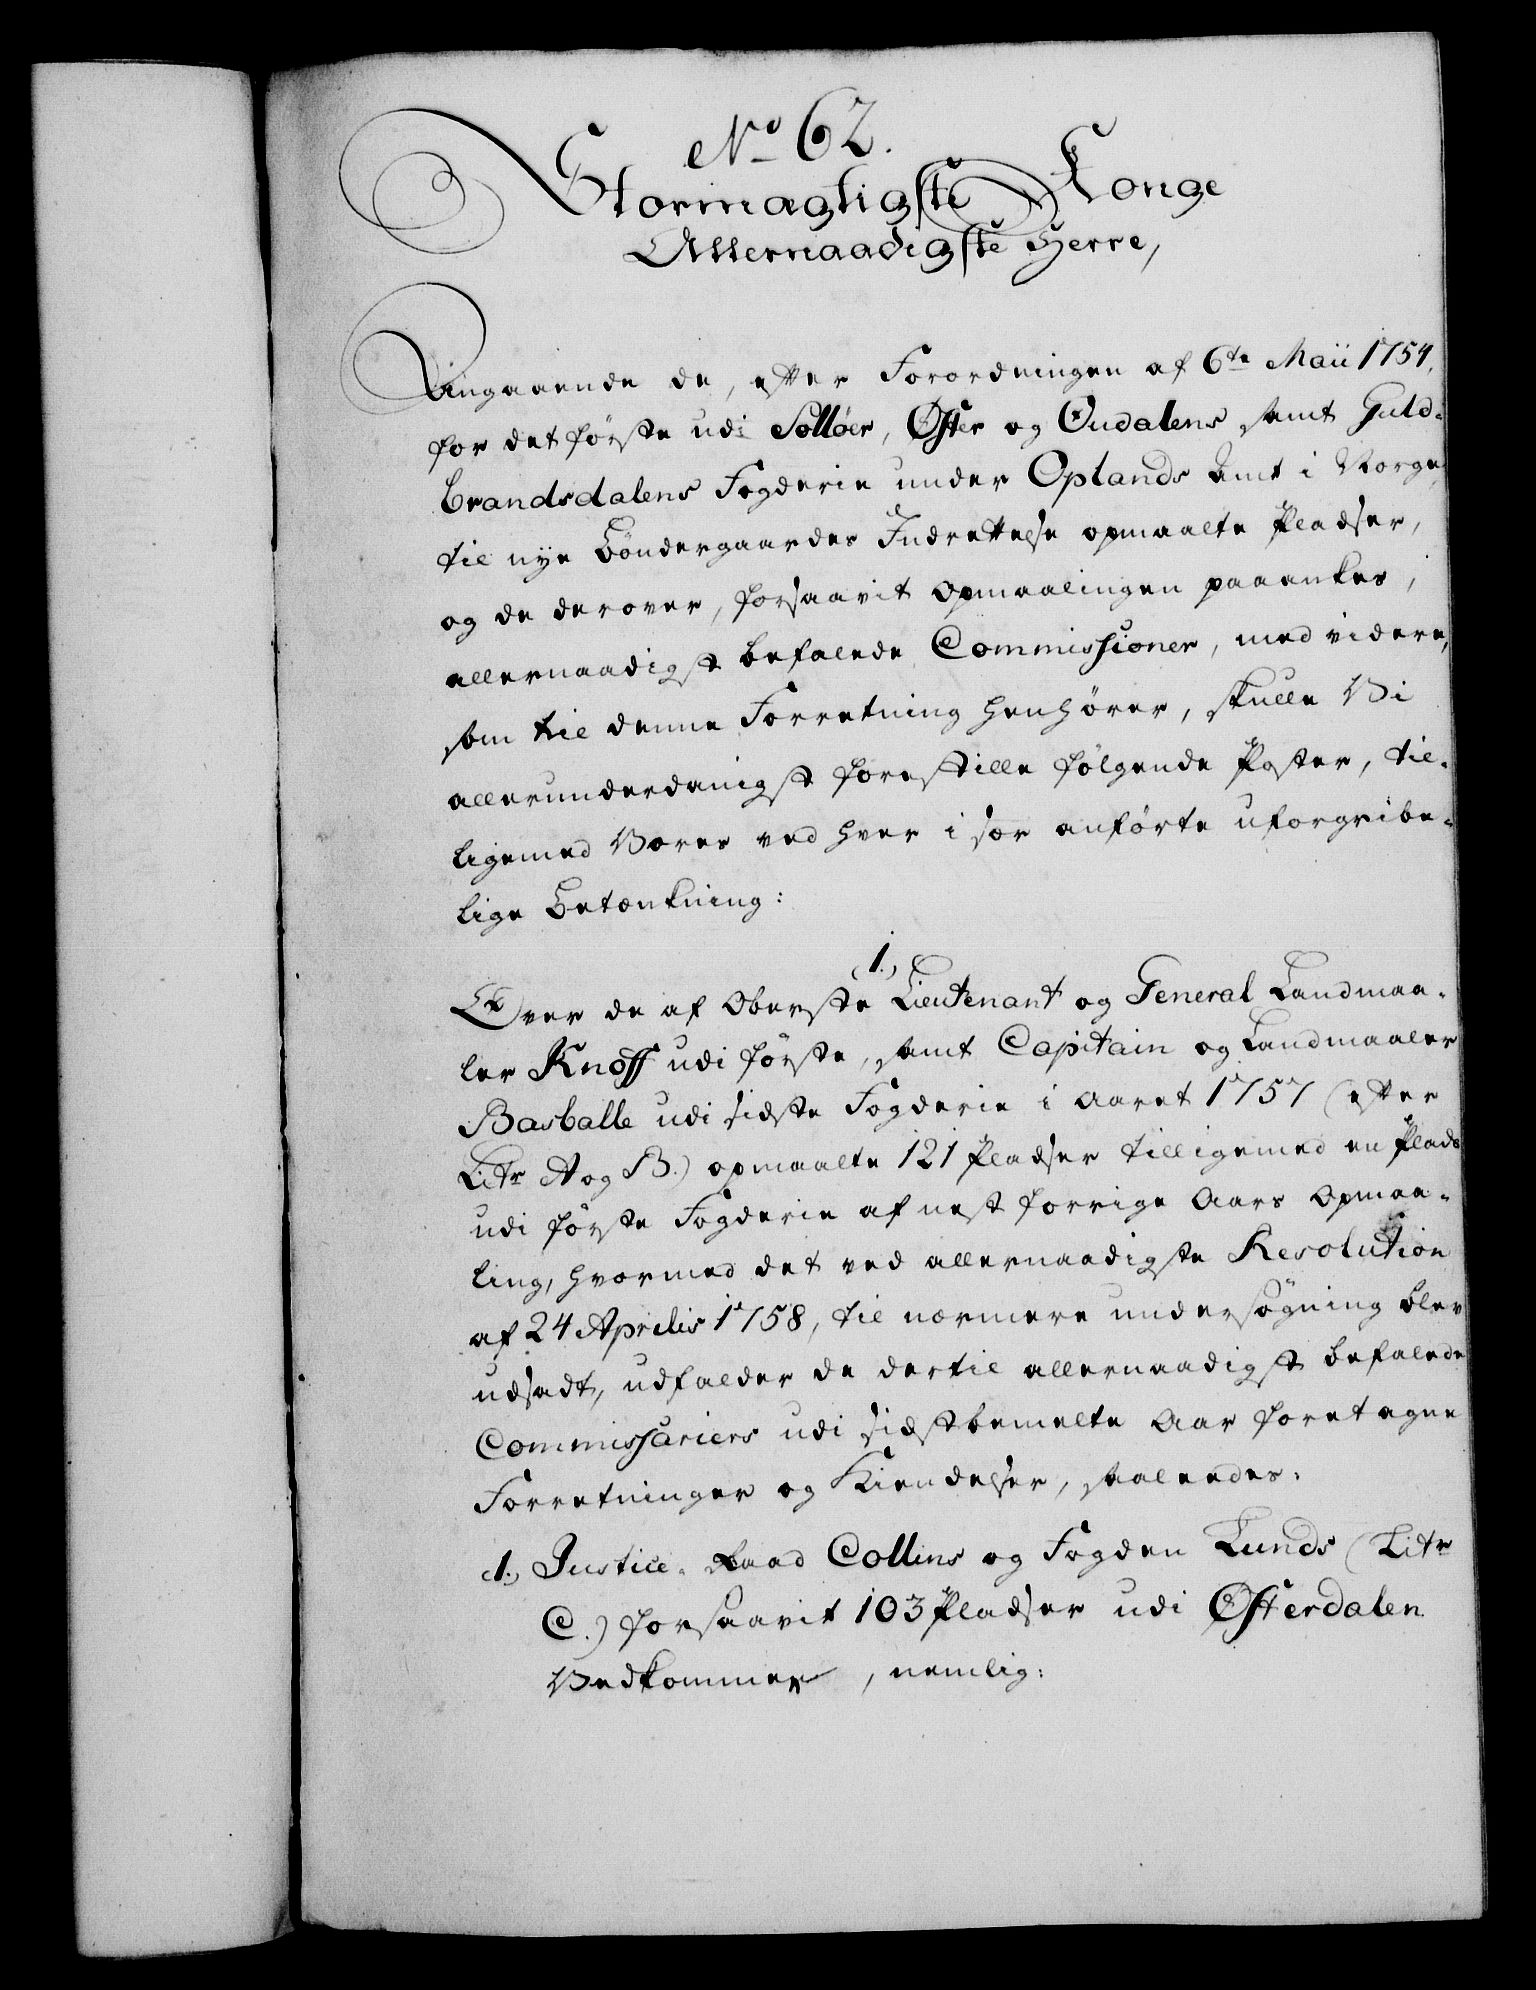 No 62.
Stormægtigste Konge
Allernaadigste Herre,
Angaaende de, efter Forordningen af 6te Maii 1754,
for det første udi Solløer, Øster og Oudalens samt Guld-
brandsdalens Fogderie under Oplands Amt i Norge,
til nye Bøndergaardes Indrettelse opmaalte Pladser,
og de derover, forsaavit Opmaalingen paaankes,
allernaadigst befalede Commissioner, med videre,
som til denne Forretning henhører, skulle Vi
allerunderdanigst forestille følgende Poster, til-
ligemed Vores ved hver i sær anførte uforgribe-
lige Betænkning:
1.,
Over de af Oberste Lieutenant og General Landmaa-
ler Knoff udi første, samt Capitain og Landmaaler
Basballe udi sidste Fogderie i Aaret 1757 (efter
Litr A og B.) opmaalte 121 Pladser tilligemed en Plads
udi første Fogderie af nest forrige Aars Opmaa-
ling, hvormed det ved allernaadigste Resolution
af 24 Aprilis 1758, til nærmere undersøgning blev
udsadt, udfalder de dertil allernaadigst befalede
Commissariers udi sidstbemelte Aar foretagne
Forretninger og Kiendelser, saaledes:
1., Justice-Raad Collins og Fogden Lunds (Litr
C.) forsaavit 103 Pladser udi Østerdalen
Vedkommer, nemlig: